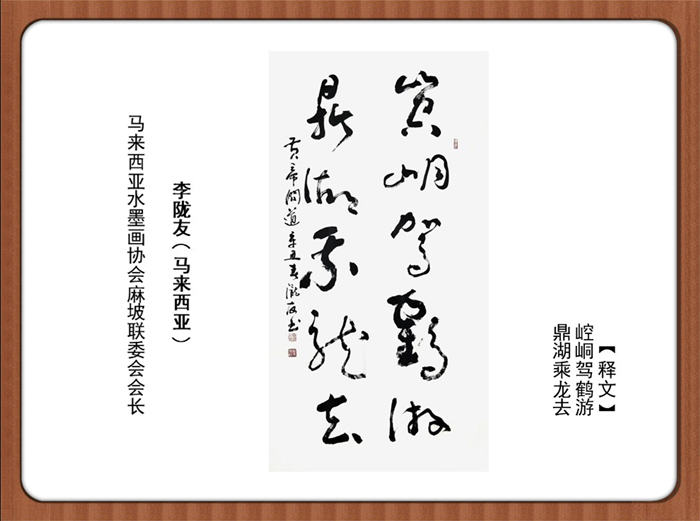 【释文】
崆峒驾鹤游
鼎湖乘龙去
崆峒驾鹤游
鼎湖乘龙去
黄帝问道辛丑春陇友书
李陇友（马来西亚）
马来西亚水墨画协会麻坡联委会会长